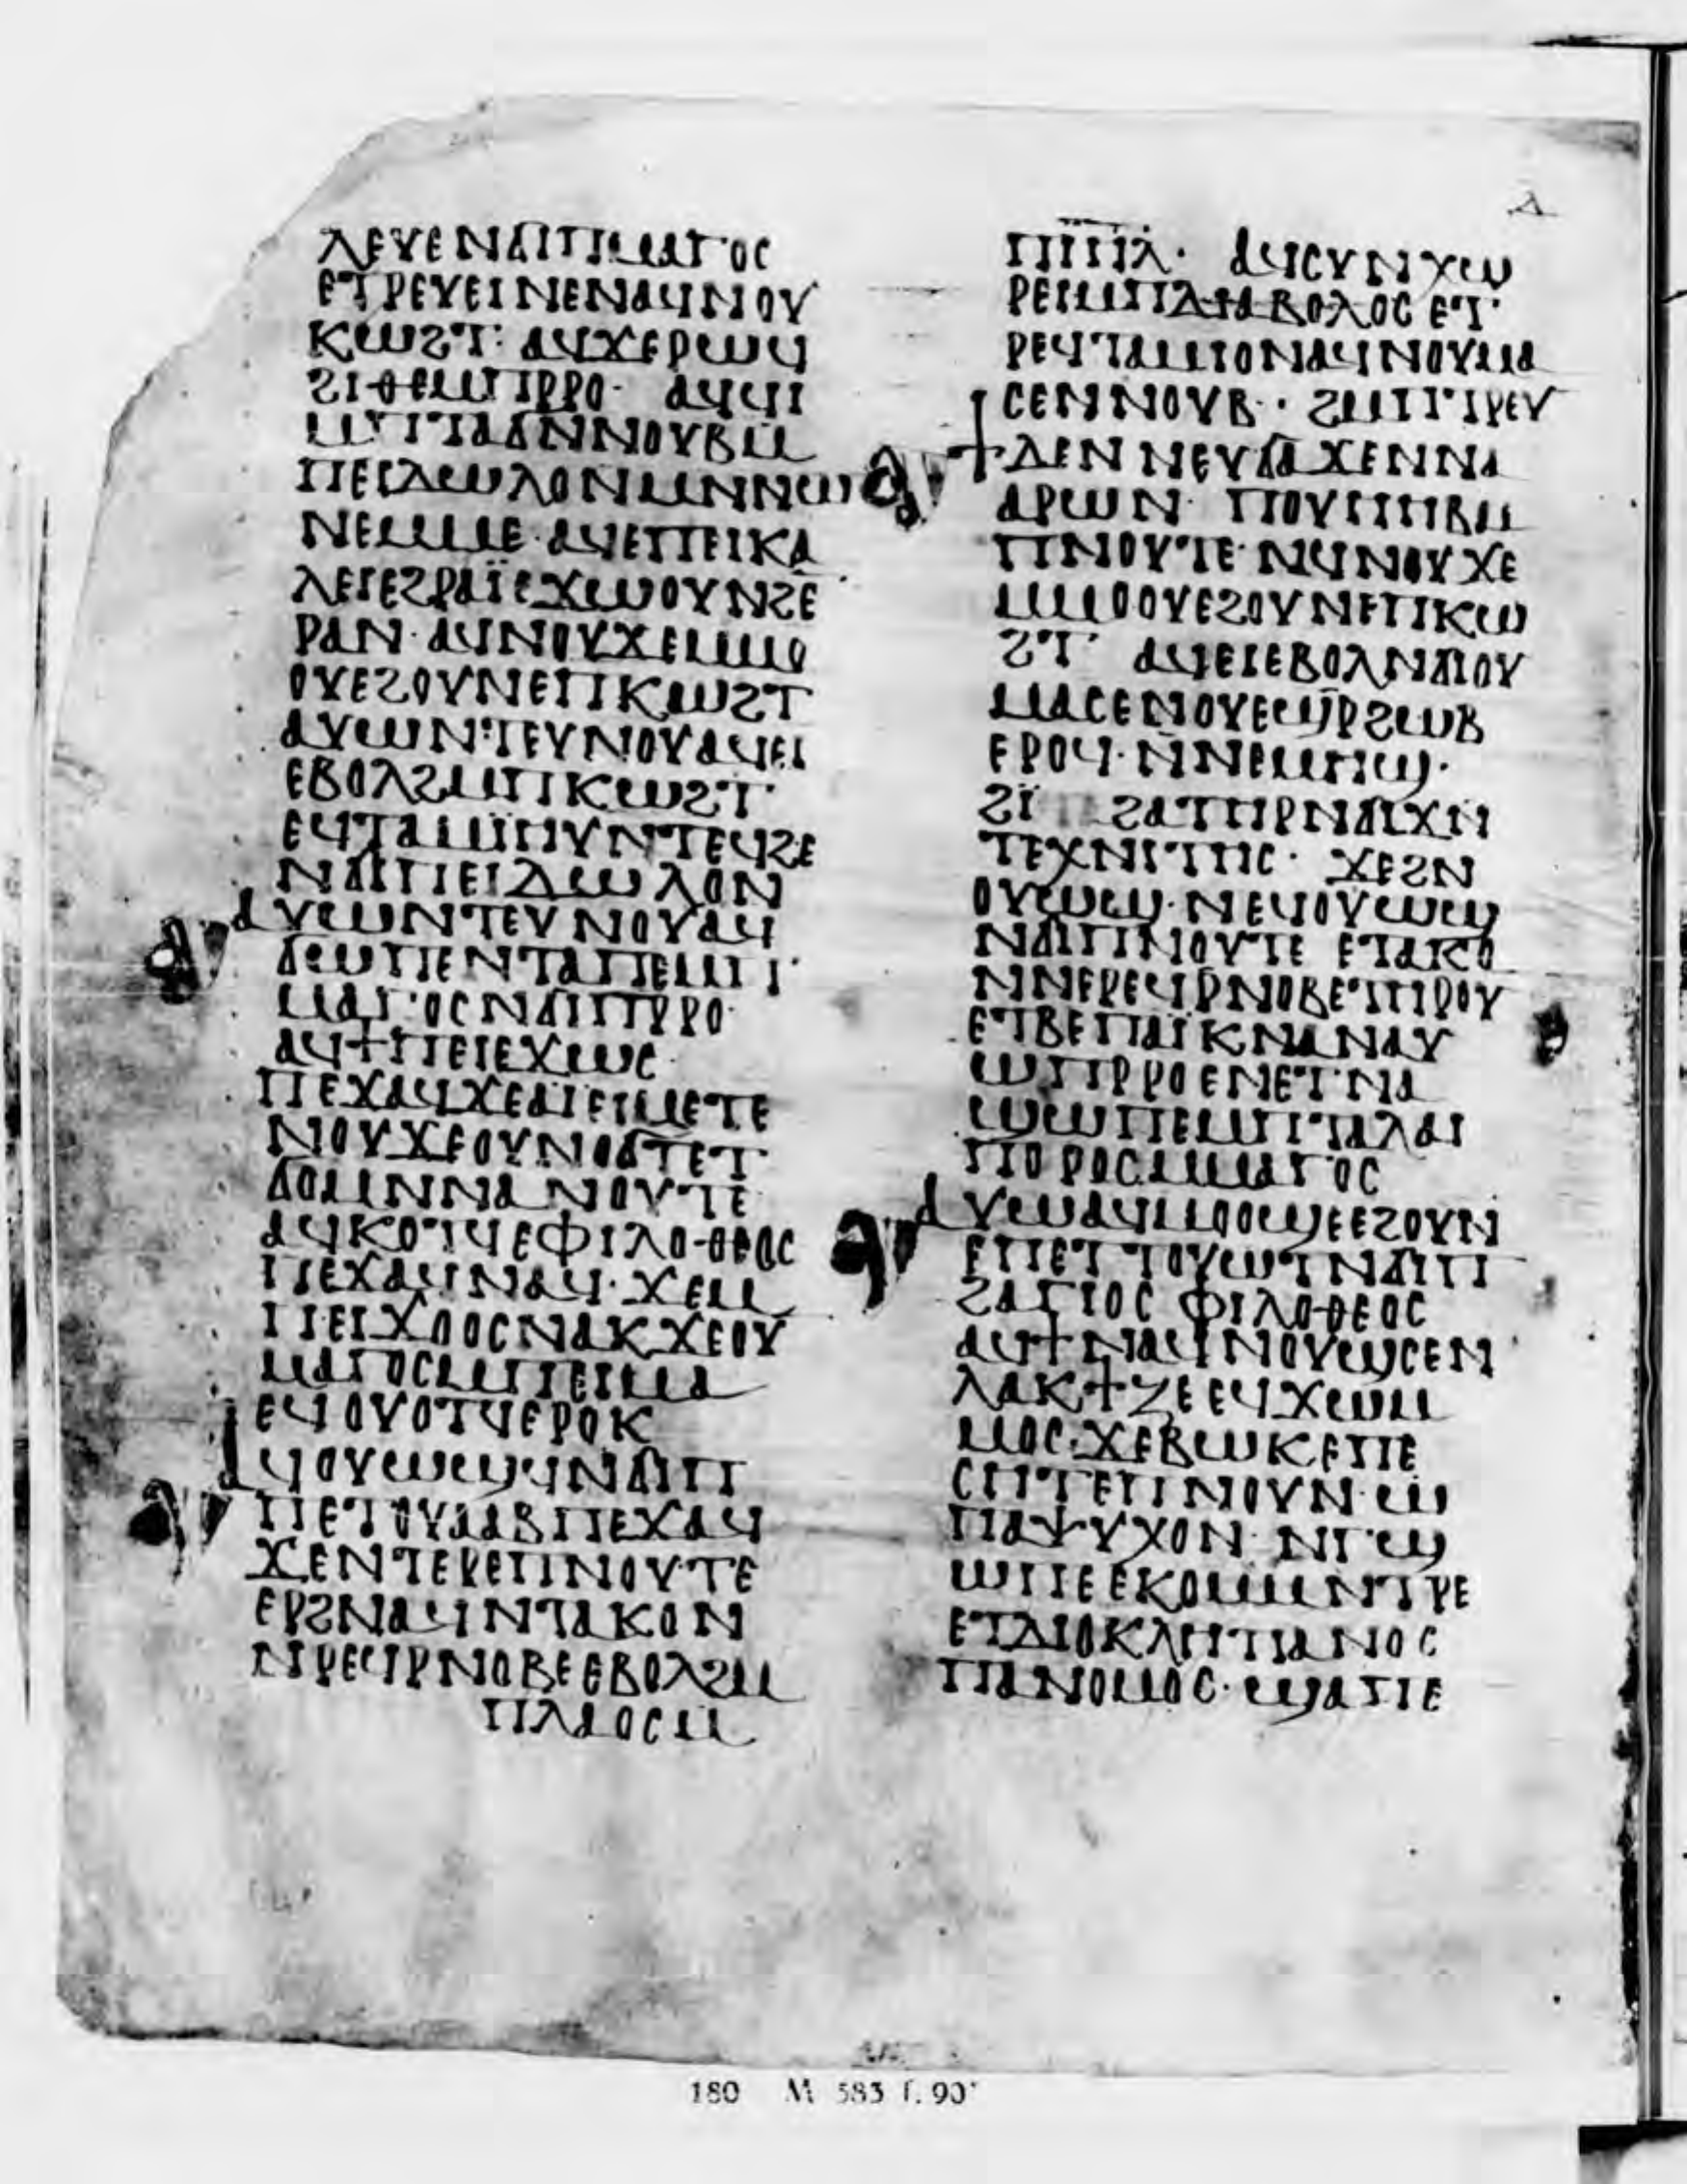 ⲗⲉⲩⲉⲛϭⲓⲡⲙⲁⲅⲟⲥ
ⲉⲧⲣⲉⲩⲉⲓⲛⲉⲛⲁϥⲛⲟⲩ
ⲕⲱϩⲧ· ⲁϥϫⲉⲣⲱϥ
ϩⲓⲑⲉⲙⲡⲣⲣⲟ· ⲁϥϥⲓ
ⲙⲡⲧⲁⲗⲛⲛⲟⲩⲃⲙ
ⲡⲉⲓⲇⲱⲗⲟⲛⲙⲛⲛⲱ
ⲛⲉⲙⲙⲉ· ⲁϥⲉⲡⲉⲓⲕⲁ
ⲗⲉⲓⲉϩⲣⲁⲓⲉϫⲱⲟⲩⲛϩⲉ
ⲣⲁⲛ· ⲁϥⲛⲟⲩϫⲉⲙⲙⲟ
ⲟⲩⲉϩⲟⲩⲛⲉⲡⲕⲱϩⲧ
ⲁⲩⲱⲛⲧⲉⲩⲛⲟⲩⲁϥⲉⲓ
ⲉⲃⲟⲗϩⲙⲡⲕⲱϩⲧ·
ⲉϥⲧⲁⲙⲏⲩⲛⲧⲉϥϩⲉ
ⲛϭⲓⲡⲉⲓⲇⲱⲗⲟⲛ
ⲁⲩⲱⲛⲧⲉⲩⲛⲟⲩⲁϥ
ϭⲱⲡⲉⲛⲧⲁⲡⲉⲙⲧ·
ⲙⲁⲅⲟⲥⲛϭⲓⲡⲣⲣⲟ·
ⲁϥϯⲡⲉⲓⲉϫⲱⲥ·
ⲡⲉϫⲁϥϫⲉⲁⲓⲉⲓⲙⲉⲧⲉ
ⲛⲟⲩϫⲉⲟⲩⲛⲟϭⲧⲉⲧ
ϭⲟⲙⲛⲛⲁⲛⲟⲩⲧⲉ
ⲁϥⲕⲟⲧϥⲉⲫⲓⲗⲟⲑⲉⲟⲥ
ⲡⲉϫⲁϥⲛⲁϥ· ϫⲉⲙ
ⲡⲉⲓϫⲟⲟⲥⲛⲁⲕϫⲉⲟⲩ
ⲙⲁⲅⲟⲥⲙⲡⲉⲓⲙⲁ
ⲉϥⲟⲩⲟⲧϥⲉⲣⲟⲕ
ⲁϥⲟⲩⲱϣϥⲛϭⲓⲡ
ⲡⲉⲧⲟⲩⲁⲁⲃⲡⲉϫⲁϥ
ϫⲉⲛⲧⲉⲣⲉⲡⲛⲟⲩⲧⲉ
ⲉⲣϩⲛⲁϥⲛⲧⲁⲕⲟⲛ
ⲛⲣⲉϥⲣⲛⲟⲃⲉⲉⲃⲟⲗϩⲙ
ⲡⲗⲁⲟⲥⲙ
ⲡⲓⲏⲗ· ⲁϥⲥⲩⲛⲭⲱ
ⲣⲉⲓⲙⲡⲇⲓⲁⲃⲟⲗⲟⲥⲉⲧ·
ⲣⲉϥⲧⲁⲙⲓⲟⲛⲁϥⲛⲟⲩⲙⲁ
ⲥⲉⲛⲛⲟⲩⲃ· ϩⲙⲡⲧⲣⲉⲩ
ϯⲇⲉⲛⲛⲉⲩϭⲓϫⲉⲛⲛⲁ
ⲁⲣⲱⲛ· ⲡⲟⲩⲏⲏⲃⲙ
ⲡⲛⲟⲩⲧⲉ· ⲛϥⲛⲟⲩϫⲉ
ⲙⲙⲟⲟⲩⲉϩⲟⲩⲛⲉⲡⲕⲱ
ϩⲧ· ⲁϥⲉⲓⲉⲃⲟⲗⲛϭⲓⲟⲩ
ⲙⲁⲥⲉⲛⲟⲩⲉϣⲣϩⲱⲃ
ⲉⲣⲟϥ· ⲛⲛⲉⲙⲏⲏϣ·
ϩⲓ ϩⲁⲧⲏⲣⲛϭⲓϫⲛ
ⲧⲉⲭⲛⲓⲧⲏⲥ· ϫⲉϩⲛ
ⲟⲩⲱϣ· ⲛⲉϥⲟⲩⲱϣ
ⲛϭⲓⲡⲛⲟⲩⲧⲉ ⲉⲧⲁⲕⲟ
ⲛⲛⲉⲣⲉϥⲣⲛⲟⲃⲉⲧⲏⲣⲟⲩ
ⲉⲧⲃⲉⲡⲁⲓⲕⲛⲁⲛⲁⲩ
ⲱⲡⲣⲣⲟⲉⲛⲉⲧⲛⲁ
ϣⲱⲡⲉⲙⲡⲧⲁⲗⲁⲓ
ⲡⲟⲣⲟⲥⲙⲙⲁⲅⲟⲥ
ⲁⲩⲱⲁϥⲙⲟⲟϣⲉⲉϩⲟⲩⲛ
ⲉⲡⲉⲧⲧⲟⲩⲱϥⲛϭⲓⲡ
ϩⲁⲅⲓⲟⲥ ⲫⲓⲗⲟⲑⲉⲟⲥ
ⲁϥϯⲛⲁϥⲛⲟⲩϣⲥⲉⲛ
ⲗⲁⲕϯⲍⲉⲉϥϫⲱⲙ
ⲙⲟⲥ· ϫⲉⲃⲱⲕⲉⲡⲉ
ⲥⲏⲧⲉⲡⲛⲟⲩⲛ· ⲱ
ⲡⲁⲯⲩⲭⲟⲛ· ⲛⲅϣ
ⲱⲡⲉⲉⲕⲟⲙⲛⲧⲣⲉ
ⲉⲧⲇⲓⲟⲕⲗⲏⲧⲓⲁⲛⲟⲥ
ⲡⲁⲛⲟⲙⲟⲥ· ϣⲁⲡⲉ
180 M 583 f. 90ʳ